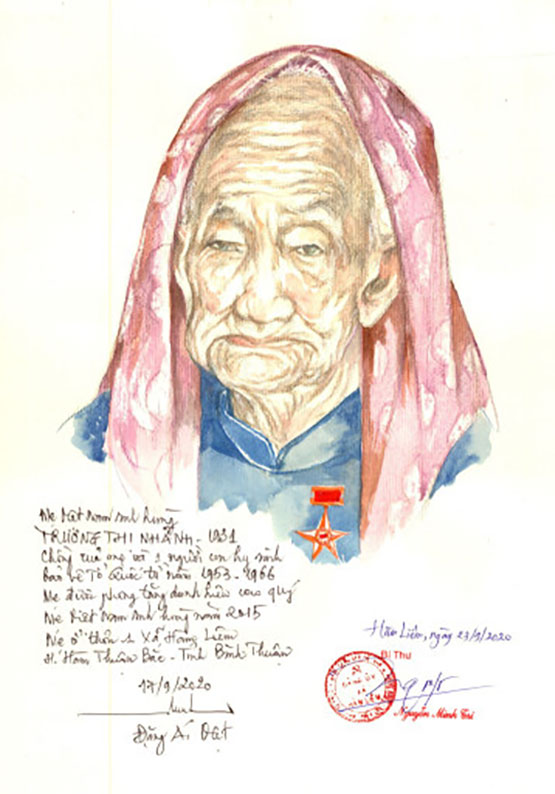 Mẹ Việt Nam Anh hùng
TRƯƠNG THỊ NHÀNH - 1931
Chồng của mẹ và 1 người con hy sinh
Bảo vệ Tổ Quốc từ năm 1953 - 1966
Mẹ được phong tặng danh hiệu cao quý
Mẹ Việt Nam Anh hùng năm 2015
Mẹ ở thôn 1 Xã Hàm Liêm
H. Hàm Thuận Bắc - Tỉnh Bình Thuận
17/9/2020
Đặng Ái Việt
Hàm Liêm, ngày 23/9/2020
Bí Thư
Nguyễn Minh Trí